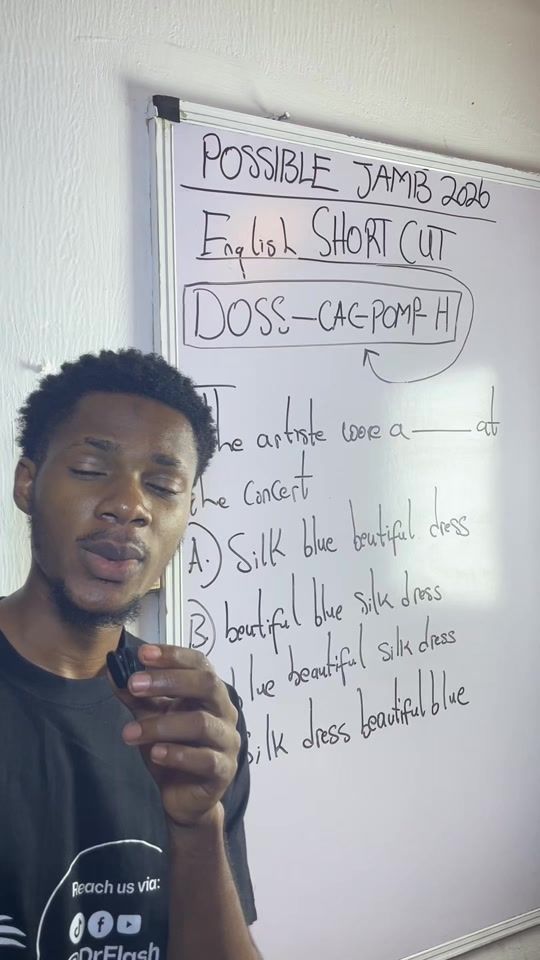 POSSIBLE JAMB 2026
English SHORT CUT
DOSS-CAC-POMP H
The artiste wore a ____ at
the concert
A.) Silk blue beutiful dress
B) beutiful blue silk dress
blue beautiful silk dress
Silk dress beautiful blue
Reach us via:
@DrFlash